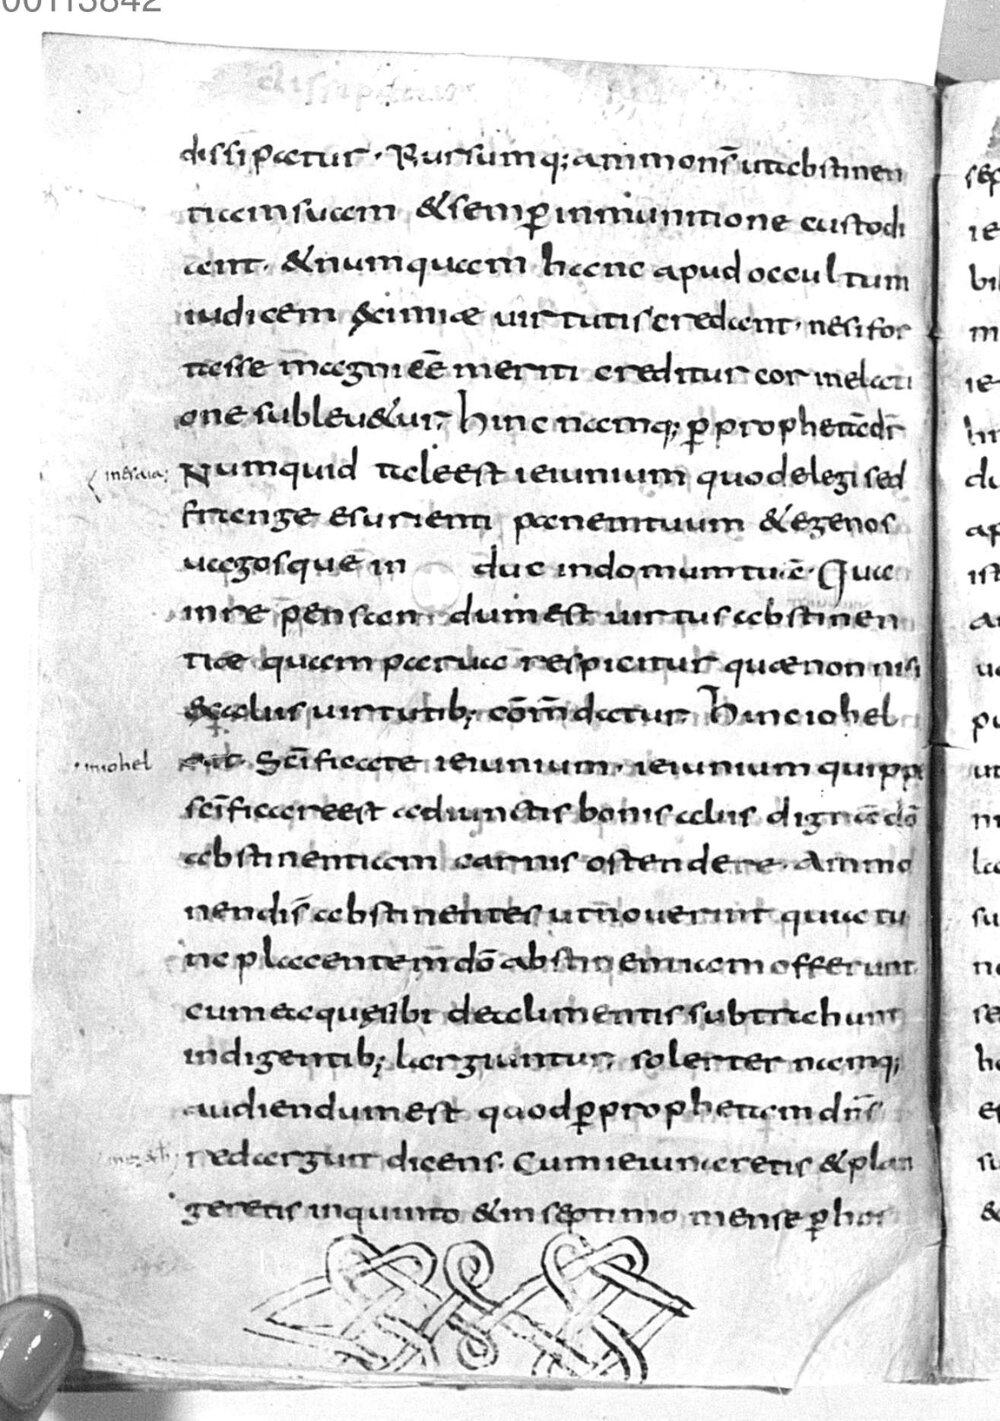 00113842
dissipatur· Rursumq; ammonendi s̄ ut abstinen
tiam suam &semp̄ inmunitione custodi
ant· &numquam hanc apud occultum
iudicem eximiae uirtutis credant· ne si for
tasse magni eē meriti creditur cor inelati
one subleu&ur; hinc namq; p̄ proph&ādr̄
in esaia;
Numquid tale est ieiunium quod elegi sed
frange esurienti panem tuum &egenos
uagosque in duc indomum tuā· Qua
inre pensandum est uirtus abstinen
tiae quam parua respicitur quae non nisi
ex aliis uirtutib; cōmdatur· Hinc iohel
in iohel
ait· Scīficate ieiunium· ieiunium quippe
scīficare est adiunctis bonis aliis dignā dō
abstinentiam carnis ostendere· Ammo
nendi s̄ abstinentes ut nouerint quia tu
nc placentem dō abstinentiam offerunt
cum ea quę sibi de alimentis subtrahunt
indigentib; largiuntur; solerter namq;
audiendum est quod p̄ proph&am dn̄s
redarguit dicens· Cum ieiunaretis &plan
geretis inquinto &in septimo mense p̄ hos